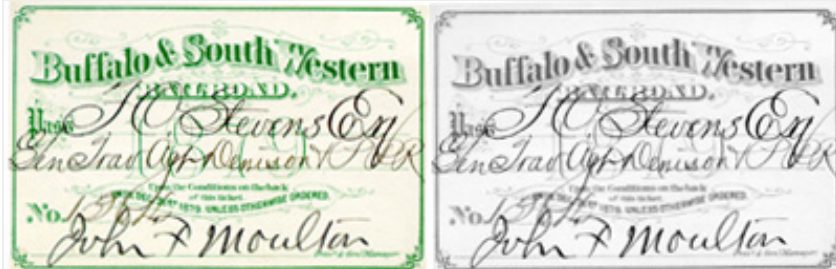 Buffalo & South Western
RAILROAD.
Pass Stevens Esq
Gen Trav Agt Denison
Upon the Conditions on the back
of this ticket.
DEC. 31ST 1879, UNLESS OTHERWISE ORDERED.
No.
John F Moulton
Buffalo & South Western
RAILROAD.
Pass Stevens Esq
Gen Trav Agt Denison
Upon the Conditions on the back
of this ticket.
DEC. 31ST 1879, UNLESS OTHERWISE ORDERED.
No.
John F Moulton